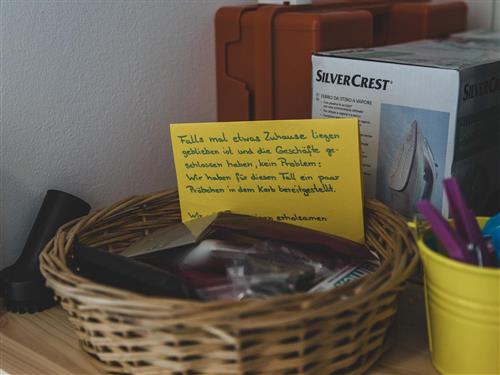 SILVERCREST®
FERRO DA STIRO A VAPORE
SILVERCREST
Falls mal etwas Zuhause liegen
geblieben ist und die Geschäfte ge-
schlossen haben, kein Problem:
Wir haben für diesen Fall ein paar
Pröbchen in dem Korb bereitgestellt.
Wir erholsamen